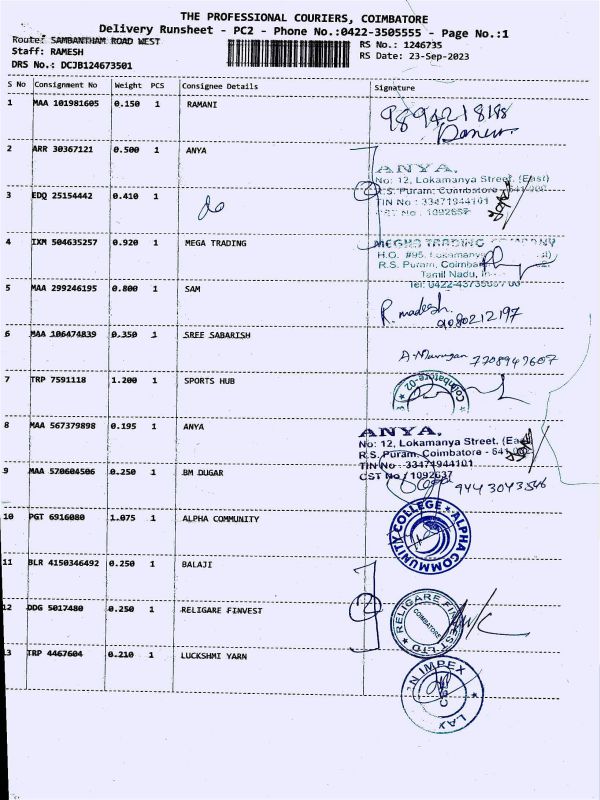 THE PROFESSIONAL COURIERS, COIMBATORE
Delivery Runsheet - PC2 - Phone No.:0422-3505555 - Page No.:1
Route: SAMBANTHAM ROAD WEST
RS No.: 1246735
Staff: RAMESH
RS Date: 23-Sep-2023
DRS No.: DCJB124673501
S No Consignment No Weight PCS Consignee Details Signature
1 MAA 101981605 0.150 1 RAMANI
9894218198
2 ARR 30367121 0.500 1 ANYA
ANYA.
No: 12, Lokamanya Street, (East)
R.S. Puram, Coimbatore - 641 002
TIN No : 33471944101
CST No : 1092637
3 EDQ 25154442 0.410 1 do
4 IXM 504635257 0.920 1 MEGA TRADING
MEGHA TRADING COMPANY
H.O. #95, Lokamanya
R.S. Puram, Coimbatore
Tamil Nadu,
Tel: 0422-
5 MAA 299246195 0.800 1 SAM
R. madesh
9080212197
6 MAA 106474839 0.350 1 SREE SABARISH
A. Murugan 7708947607
7 TRP 7591118 1.200 1 SPORTS HUB
Coimbatore-02
8 MAA 567379898 0.195 1 ANYA
ANYA.
No: 12, Lokamanya Street, (East)
R.S. Puram, Coimbatore - 641 002
TIN No : 33471944101
CST No : 1092637
9 MAA 570604506 0.250 1 BM DUGAR
9443043546
10 PGT 6916080 1.075 1 ALPHA COMMUNITY
COMMUNITY COLLEGE ★ ALPHA
11 BLR 4150346492 0.250 1 BALAJI
12 DDG 5017480 0.250 1 RELIGARE FINVEST
RELIGARE FINVEST LTD
COIMBATORE
13 TRP 4467604 0.210 1 LUCKSHMI YARN
N IMPEX
LAX